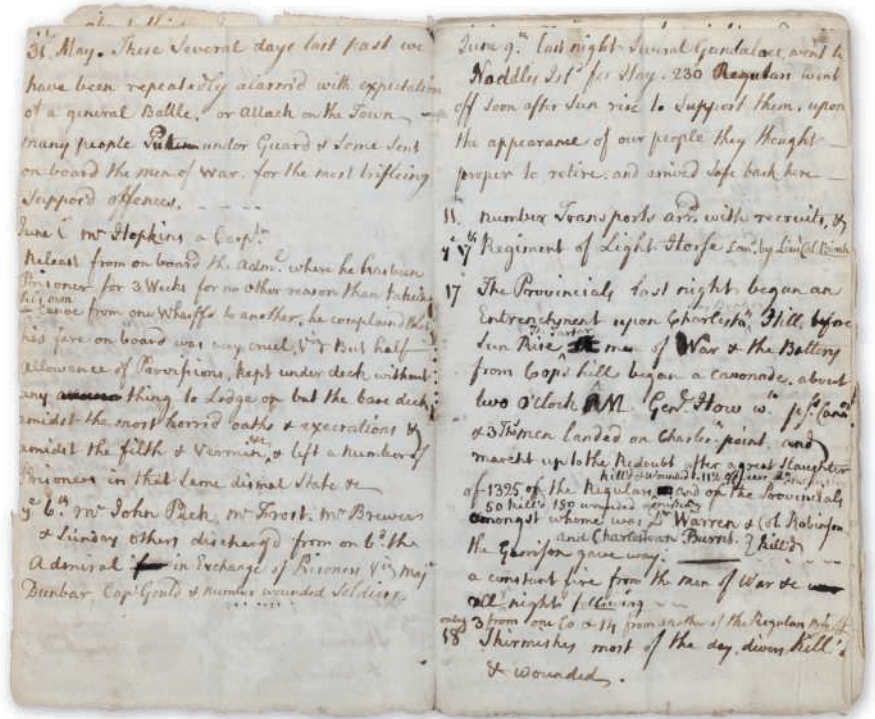 31st May. These Several days last past we
have been repeatedly alarmd with expectation
of a general Battle. or Attack on the Town
many people under Guard & Some Sent
on board the men of War. for the most trifleing
Suppos'd offences.
June Mr Hopkins a Carptr
Releast from on board the Adml where he has been
Prisoner for 3 Weeks for no other reason than takeing
his own
Canoe from one Wharffe to another, he complained that
his fare on board was very cruel, Viz But half
allowance of Provissions, kept under deck without
any thing to Lodge on but the bare deck
amidst the most horrid oaths & execrations &
amidst the filth & Vermin, & left a number of
Prisoners in that same dismal State &c
ye 6th Mr John Peck, Mr Frost, Mr Brewer
& Sunday others dischergd from on bd the
Admiral in Exchange of Prisoners Viz Majr
Dunbar Capt Gould & number wounded Soldiers
June 9th last night Several Gundaloes went to
Noddles Isld for Hay. 230 Regulars went
off soon after Sun rise to Support them. upon
the appearance of our people they thought
proper to retire. and arrived Safe back here
11 number Transports arrd with recruits, &
ye 7th Regiment of Light Horse Comd by
17 The Provincials last night began an
Entrenchment upon Charlestn Hill, before
Sun Rise men of War & the Battery
from Cops hill began a canonade. about
two O'Clock PM Genl How wth
& 3 Thd men landed on Charlesn point, and
marcht up to the Redoubt after a great Slaughter
killd & wounded
of 1325 of the Regulars, and of the Provincials
50 killd 150 wounded
amongst whome was Dr Warren & Col. Robinson
and Charlestown Burnt. killd
the Garrison gave way:
a constant fire from the men of War &c
all night following
only 3 from one Co & 14 from another of the Regulars
18 Skirmishes most of the day, divers killd
& wounded.